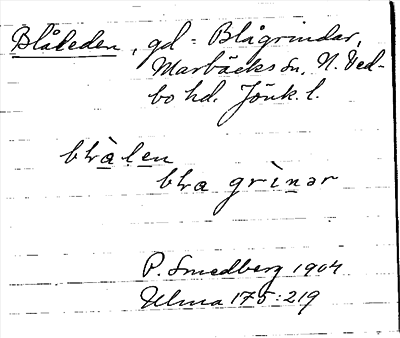 Blåleden, gd = Blågrindar,
Marbäcks sn, N. Ved-
bo hd. Jönk. l.
blàlen
bla grìnər
P. Smedberg 1904
Ulma 175:219